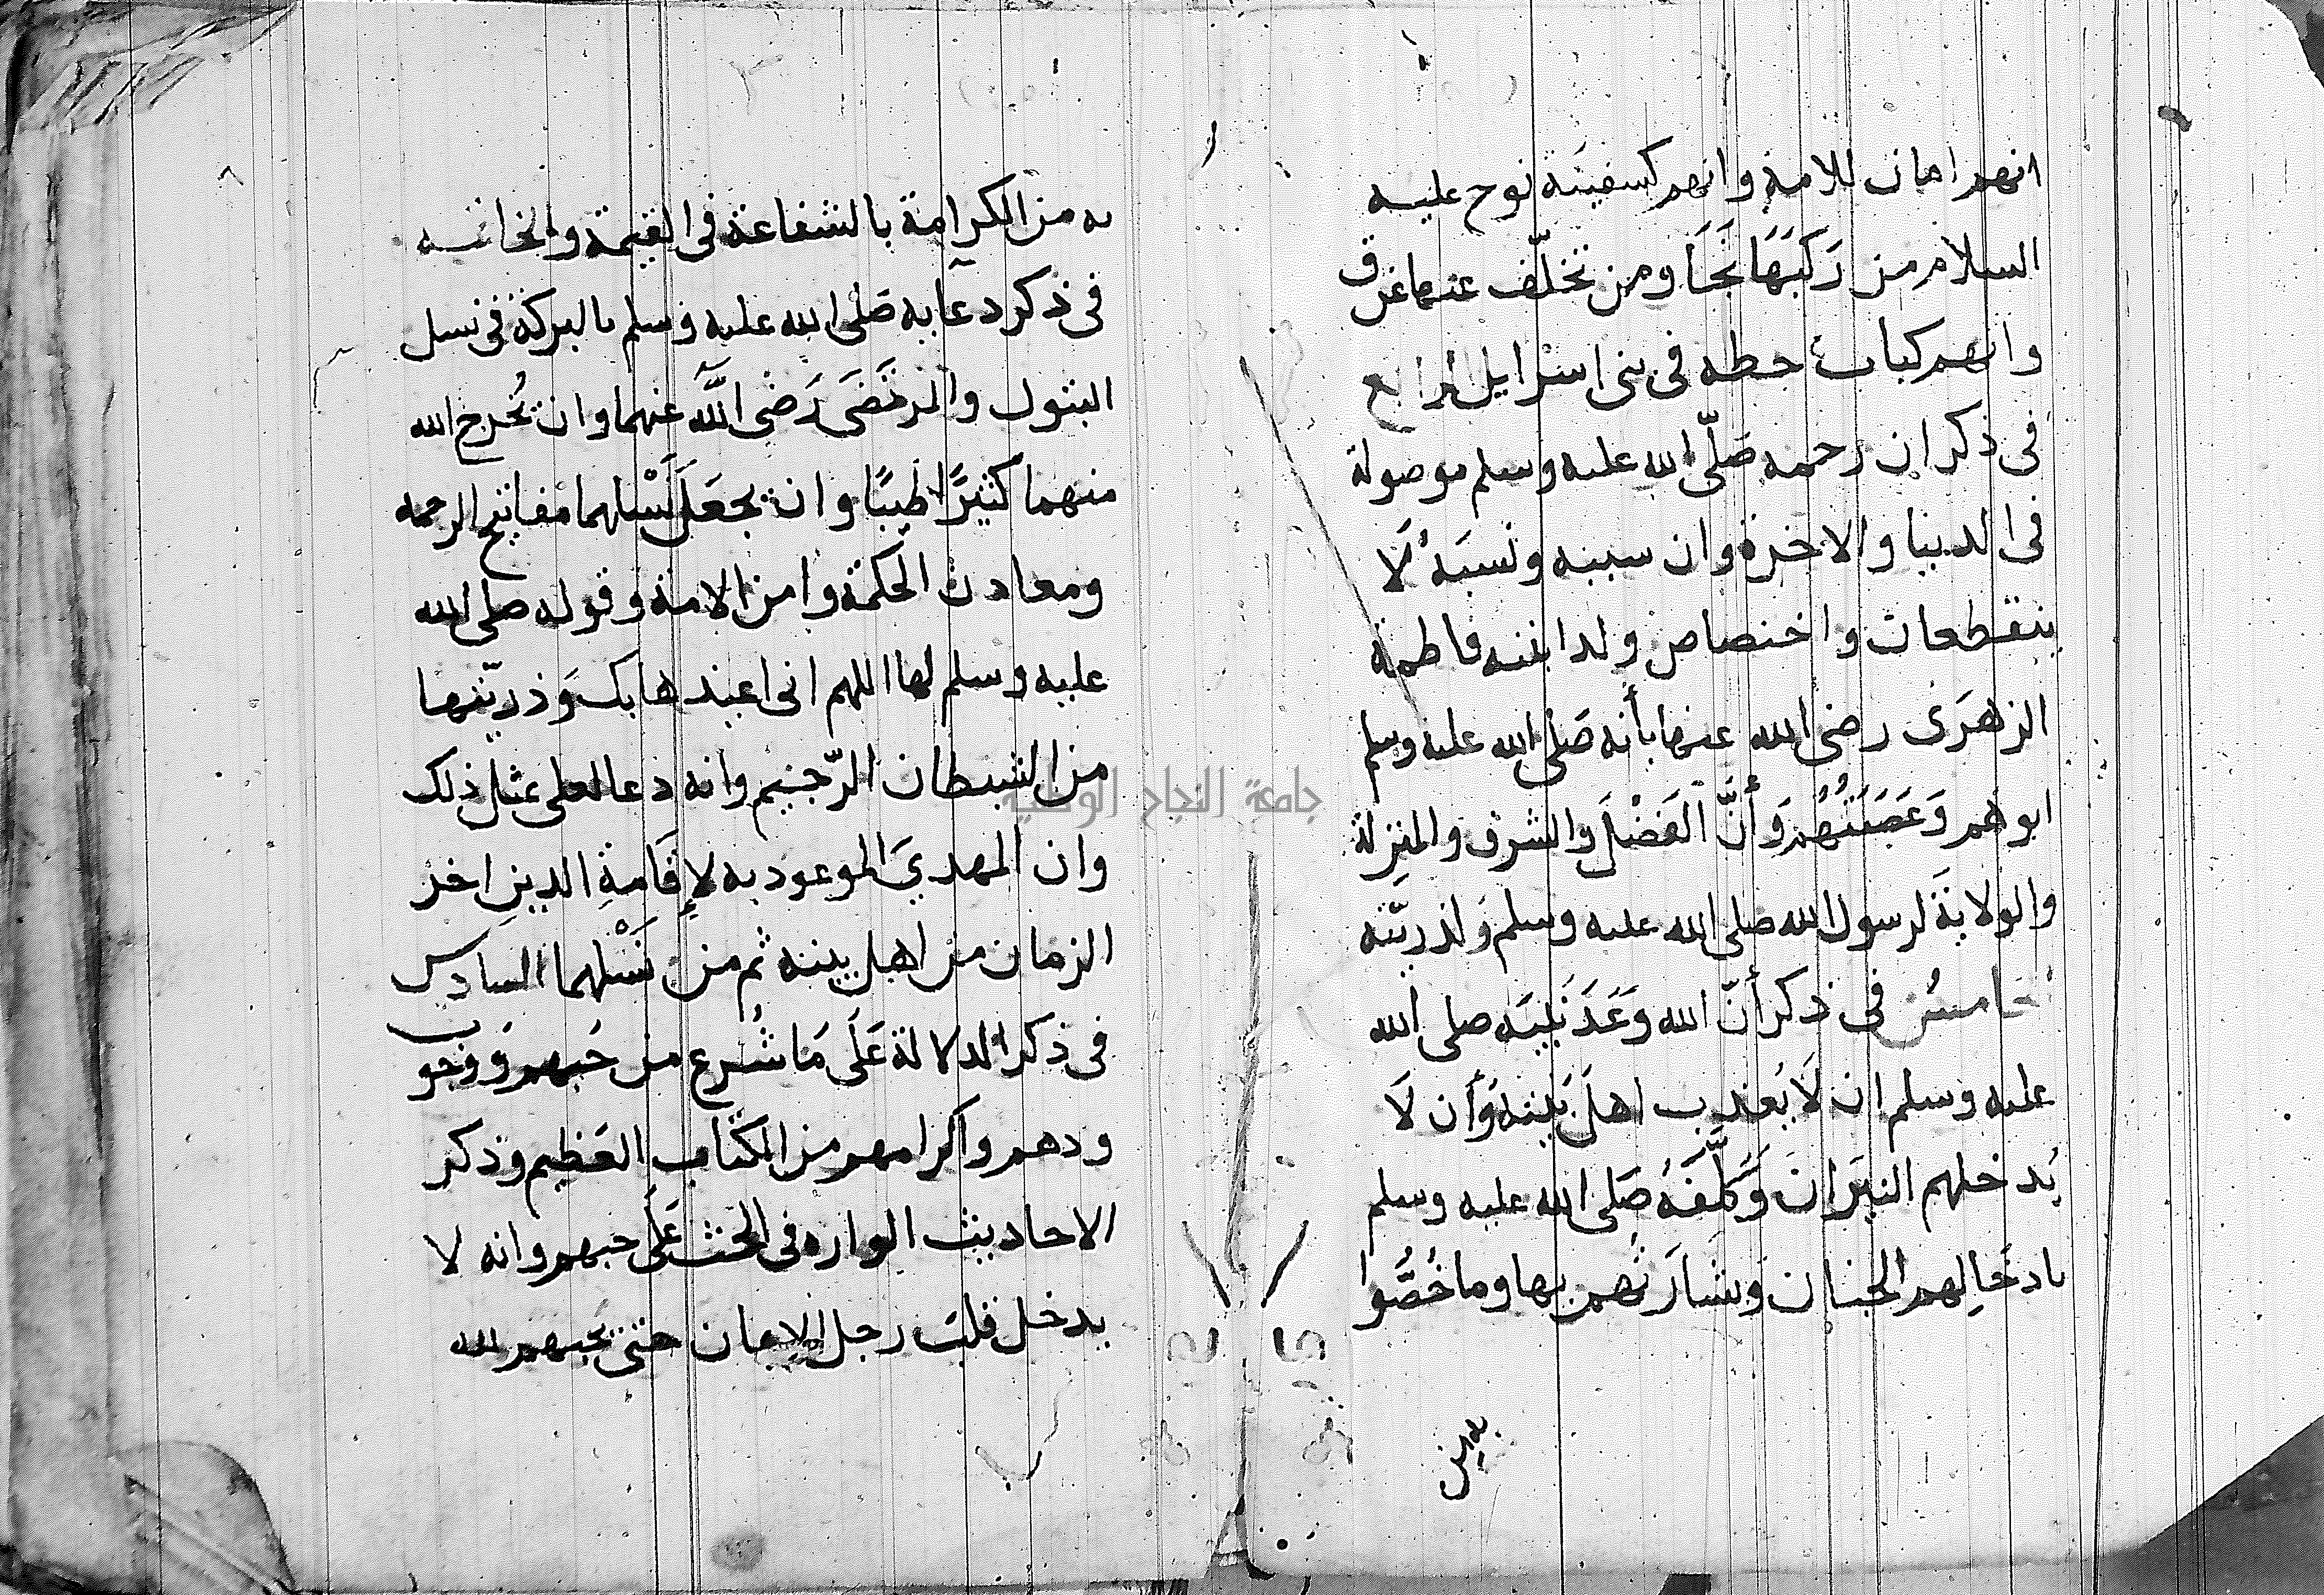 انهم امان للامة وانهم كسفينة نوح عليه
السلام من رَكبَهَا نَجَا ومن تخلّف عنها غرق
وانهم كباب حطه في بنى اسرايل الرابع
في ذكر ان رحمه صَلّى الله عليه وسلم موصولة
في الدنيا والاخرة وان سببه ونسبَهُ لَا
ينقطعان واختصاص ولد ابنته فاطمة
الزهرَى رضى الله عنها بأنه صَلى الله عليه وسلم
ابوهم وَعَصَبَتُهُم وَأَنَّ الفَضْلَ والشرف والمنزلة
والولايةَ لرسول الله صلى الله عليه وسلم ولذريّته
الخامس في ذكر أنّ الله وَعَدَ نَبيَه صلى الله
عليه وسلم ان لَا يُعذب اهلَ بَيته وَأن لَا
يُدخلهم النيرَان وَكلّفَهُ صَلى الله عليه وسلم
بادخَالِهم الجنان وبشَارَتهم بها وما خُصُّوا
به من الكرامة بالشفاعة في القيمة والخاتمه
في ذكر دعايه صَلى الله عليه وسلم بالبركة في نسل
البتول والمرتَضَى رَضى اللَّه عنهما وان يُخرج الله
منهما كثيرًا طيبًا وان يجعَل نَسْلهما مفاتيح الرحمه
ومعادن الحكمة وامن الامة وقوله صلى الله
عليه وسلم لها اللهم انى اعيذها بك وَذريّتها
من الشيطان الرّجيم وانه دعا لعلى بمثل ذلك
وان المهديَ الموعود به لإقَامةِ الدين اخر
الزمان من اهل بيته ثم من نَسْلهما السادس
في ذكر الدلالة عَلَى مَا شُرع من حَبهم وَوجوب
ودهم واكرامهم من الكتاب العَظيم وذكر
الاحاديث الوارده في الحث عَلَى حبهم وانه لا
يدخل قلب رجل الايمان حتى يحبهم لله